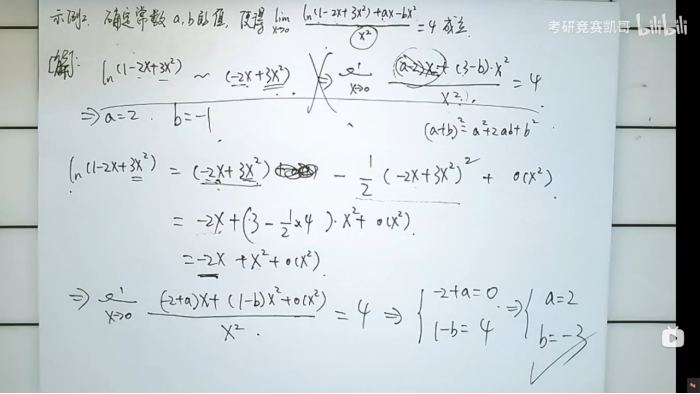 示例2. 确定常数 a,b的值, 使得 lim x→0 (ln(1-2x+3x²)+ax-bx²)/x² = 4 成立.
考研竞赛凯哥 bilibili
[解]: ln(1-2x+3x²) ~ (-2x+3x²) ⇒ lim x→0 ((a-2)x+(3-b)·x²)/x² = 4
⇒ a=2. b=-1
(a+b)²=a²+2ab+b²
ln(1-2x+3x²) = (-2x+3x²) - 1/2 (-2x+3x²)² + o(x²).
= -2x+(3-1/2×4)·x²+o(x²).
= -2x+x²+o(x²).
⇒ lim x→0 ((-2+a)x+(1-b)x²+o(x²))/x² = 4 ⇒ { -2+a=0. 1-b=4 ⇒ { a=2 b=-3